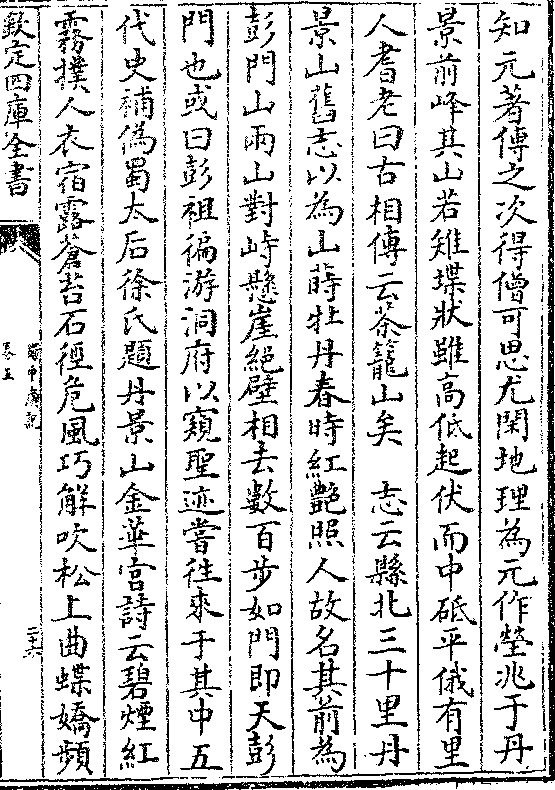 知元著傳之次得僧可思尤閑地理為元作塋兆于丹
景前峰其山若雉堞狀雖高低起伏而中砥平俄有里
人耆老曰古相傳云茶籠山矣　志云縣北三十里丹
景山舊志以為山蒔牡丹春時紅艷照人故名其前為
彭門山兩山對峙懸崖絕壁相去數百步如門即天彭
門也或曰彭祖徧游洞府以窺聖迹嘗往來于其中五
代史補偽蜀太后徐氏題丹景山金華宮詩云碧煙紅
霧撲人衣宿露蒼苔石徑危風巧解吹松上曲蝶嬌頻
欽定四庫全書
蜀中廣記
卷五
二十六